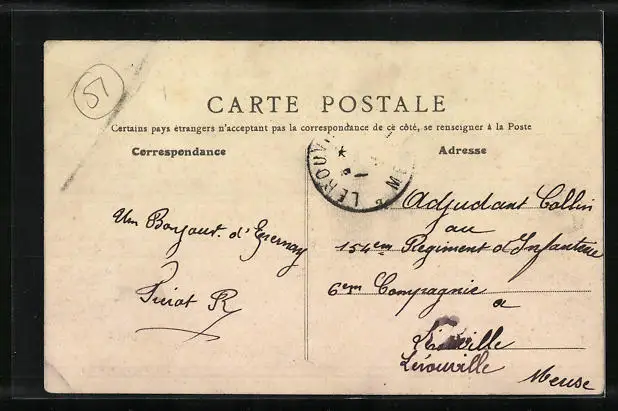 57
CARTE POSTALE
Certains pays étrangers n'acceptant pas la correspondance de ce côté, se renseigner à la Poste
Correspondance
Adresse
LEROUV
ME
Un Bonjour d'Epernay
R
Adjudant Collin
au
154em Régiment d'Infanterie
6em Compagnie
a
Lérouville
Meuse